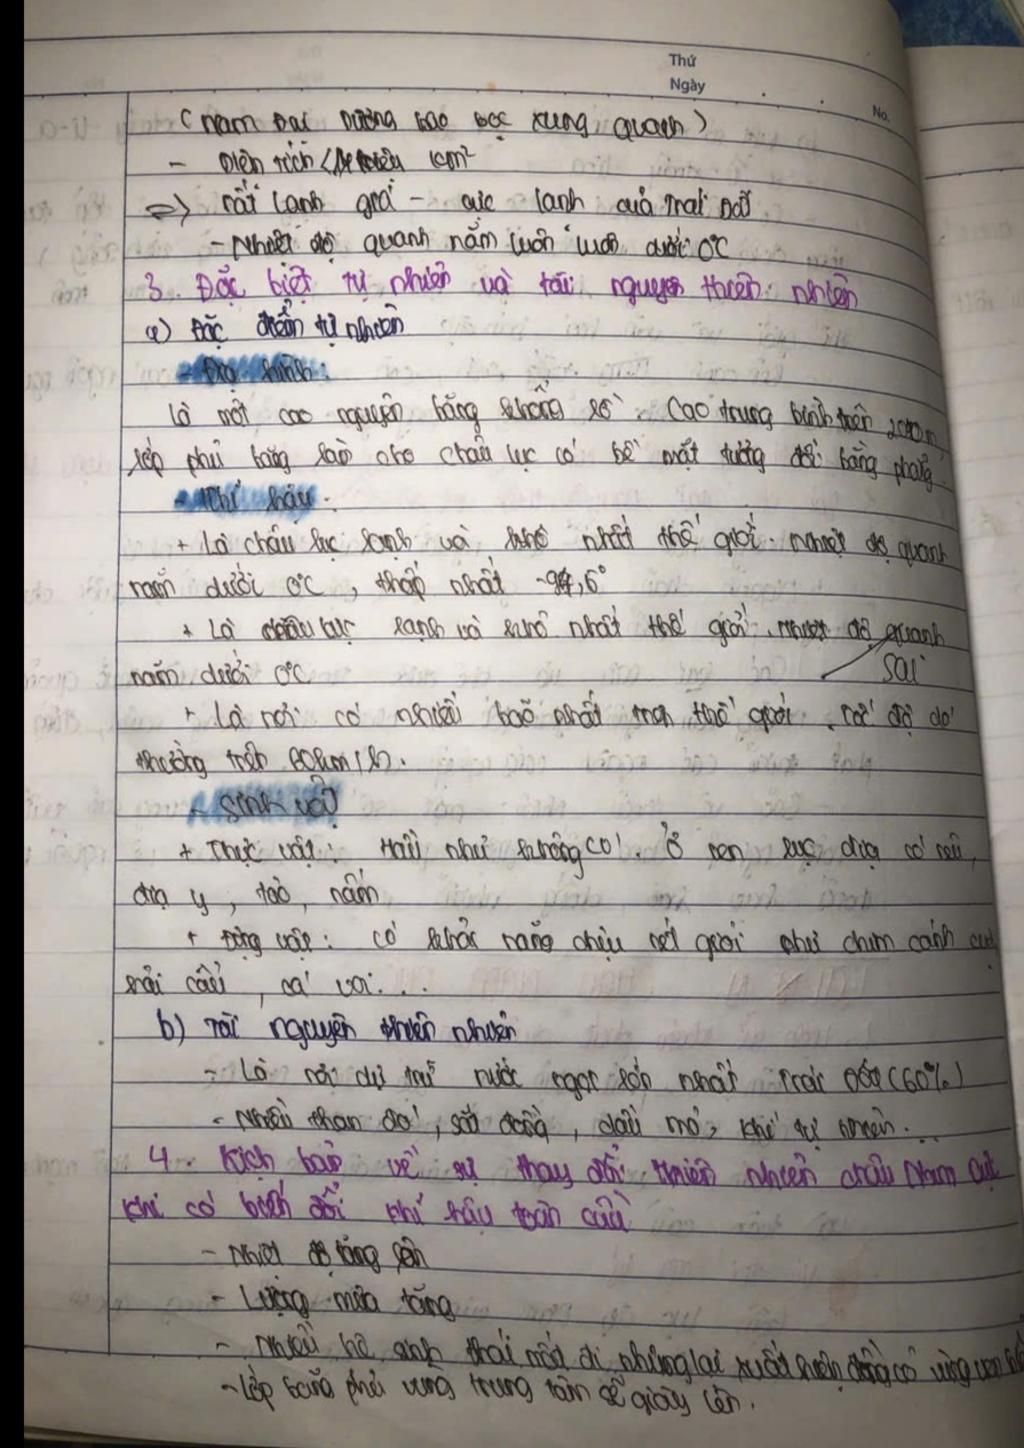 Thứ
Ngày
No.
(Nam Đại Dương bao bọc xung quanh)
- Diện tích 14 triệu km²
=> rất lạnh giá - cực lạnh của Trái Đất
- Nhiệt độ quanh năm luôn luôn dưới 0°C
3. Đặc biệt tự nhiên và tài nguyên thiên nhiên
a) Đặc điểm tự nhiên
- Địa hình:
Là một cao nguyên băng khổng lồ. Cao trung bình trên 2040m,
lớp phủ băng làm cho châu lục có bề mặt tương đối bằng phẳng.
- Khí hậu:
+ Là châu lục lạnh và khô nhất thế giới. nhiệt độ quanh
năm dưới 0°C, thấp nhất -94,6°
+ Là châu lục lạnh và khô nhất thế giới. nhiệt độ quanh
năm dưới 0°C sai
+ Là nơi có nhiều bão nhất trên thế giới, tốc độ gió
thường trên 60km/h.
- Sinh vật
+ Thực vật: Hầu như không có. Ở ven lục địa có rêu,
địa y, tảo, nấm
+ Động vật: có khả năng chịu rét giỏi như chim cánh cụt,
hải cẩu, cá voi...
b) Tài nguyên thiên nhiên
- Là nơi dự trữ nước ngọt lớn nhất Trái Đất (60%)
- Nhiều than đá, sắt, đồng, dầu mỏ, khí tự nhiên...
4. Kịch bản về sự thay đổi thiên nhiên châu Nam Cực
khi có biến đổi khí hậu toàn cầu
- Nhiệt độ tăng lên
- Lượng mưa tăng
- Nhiều hệ sinh thái mất đi nhưng lại xuất hiện đồng cỏ vùng ven biển
- Lớp băng phủ vùng trung tâm sẽ giày lên.